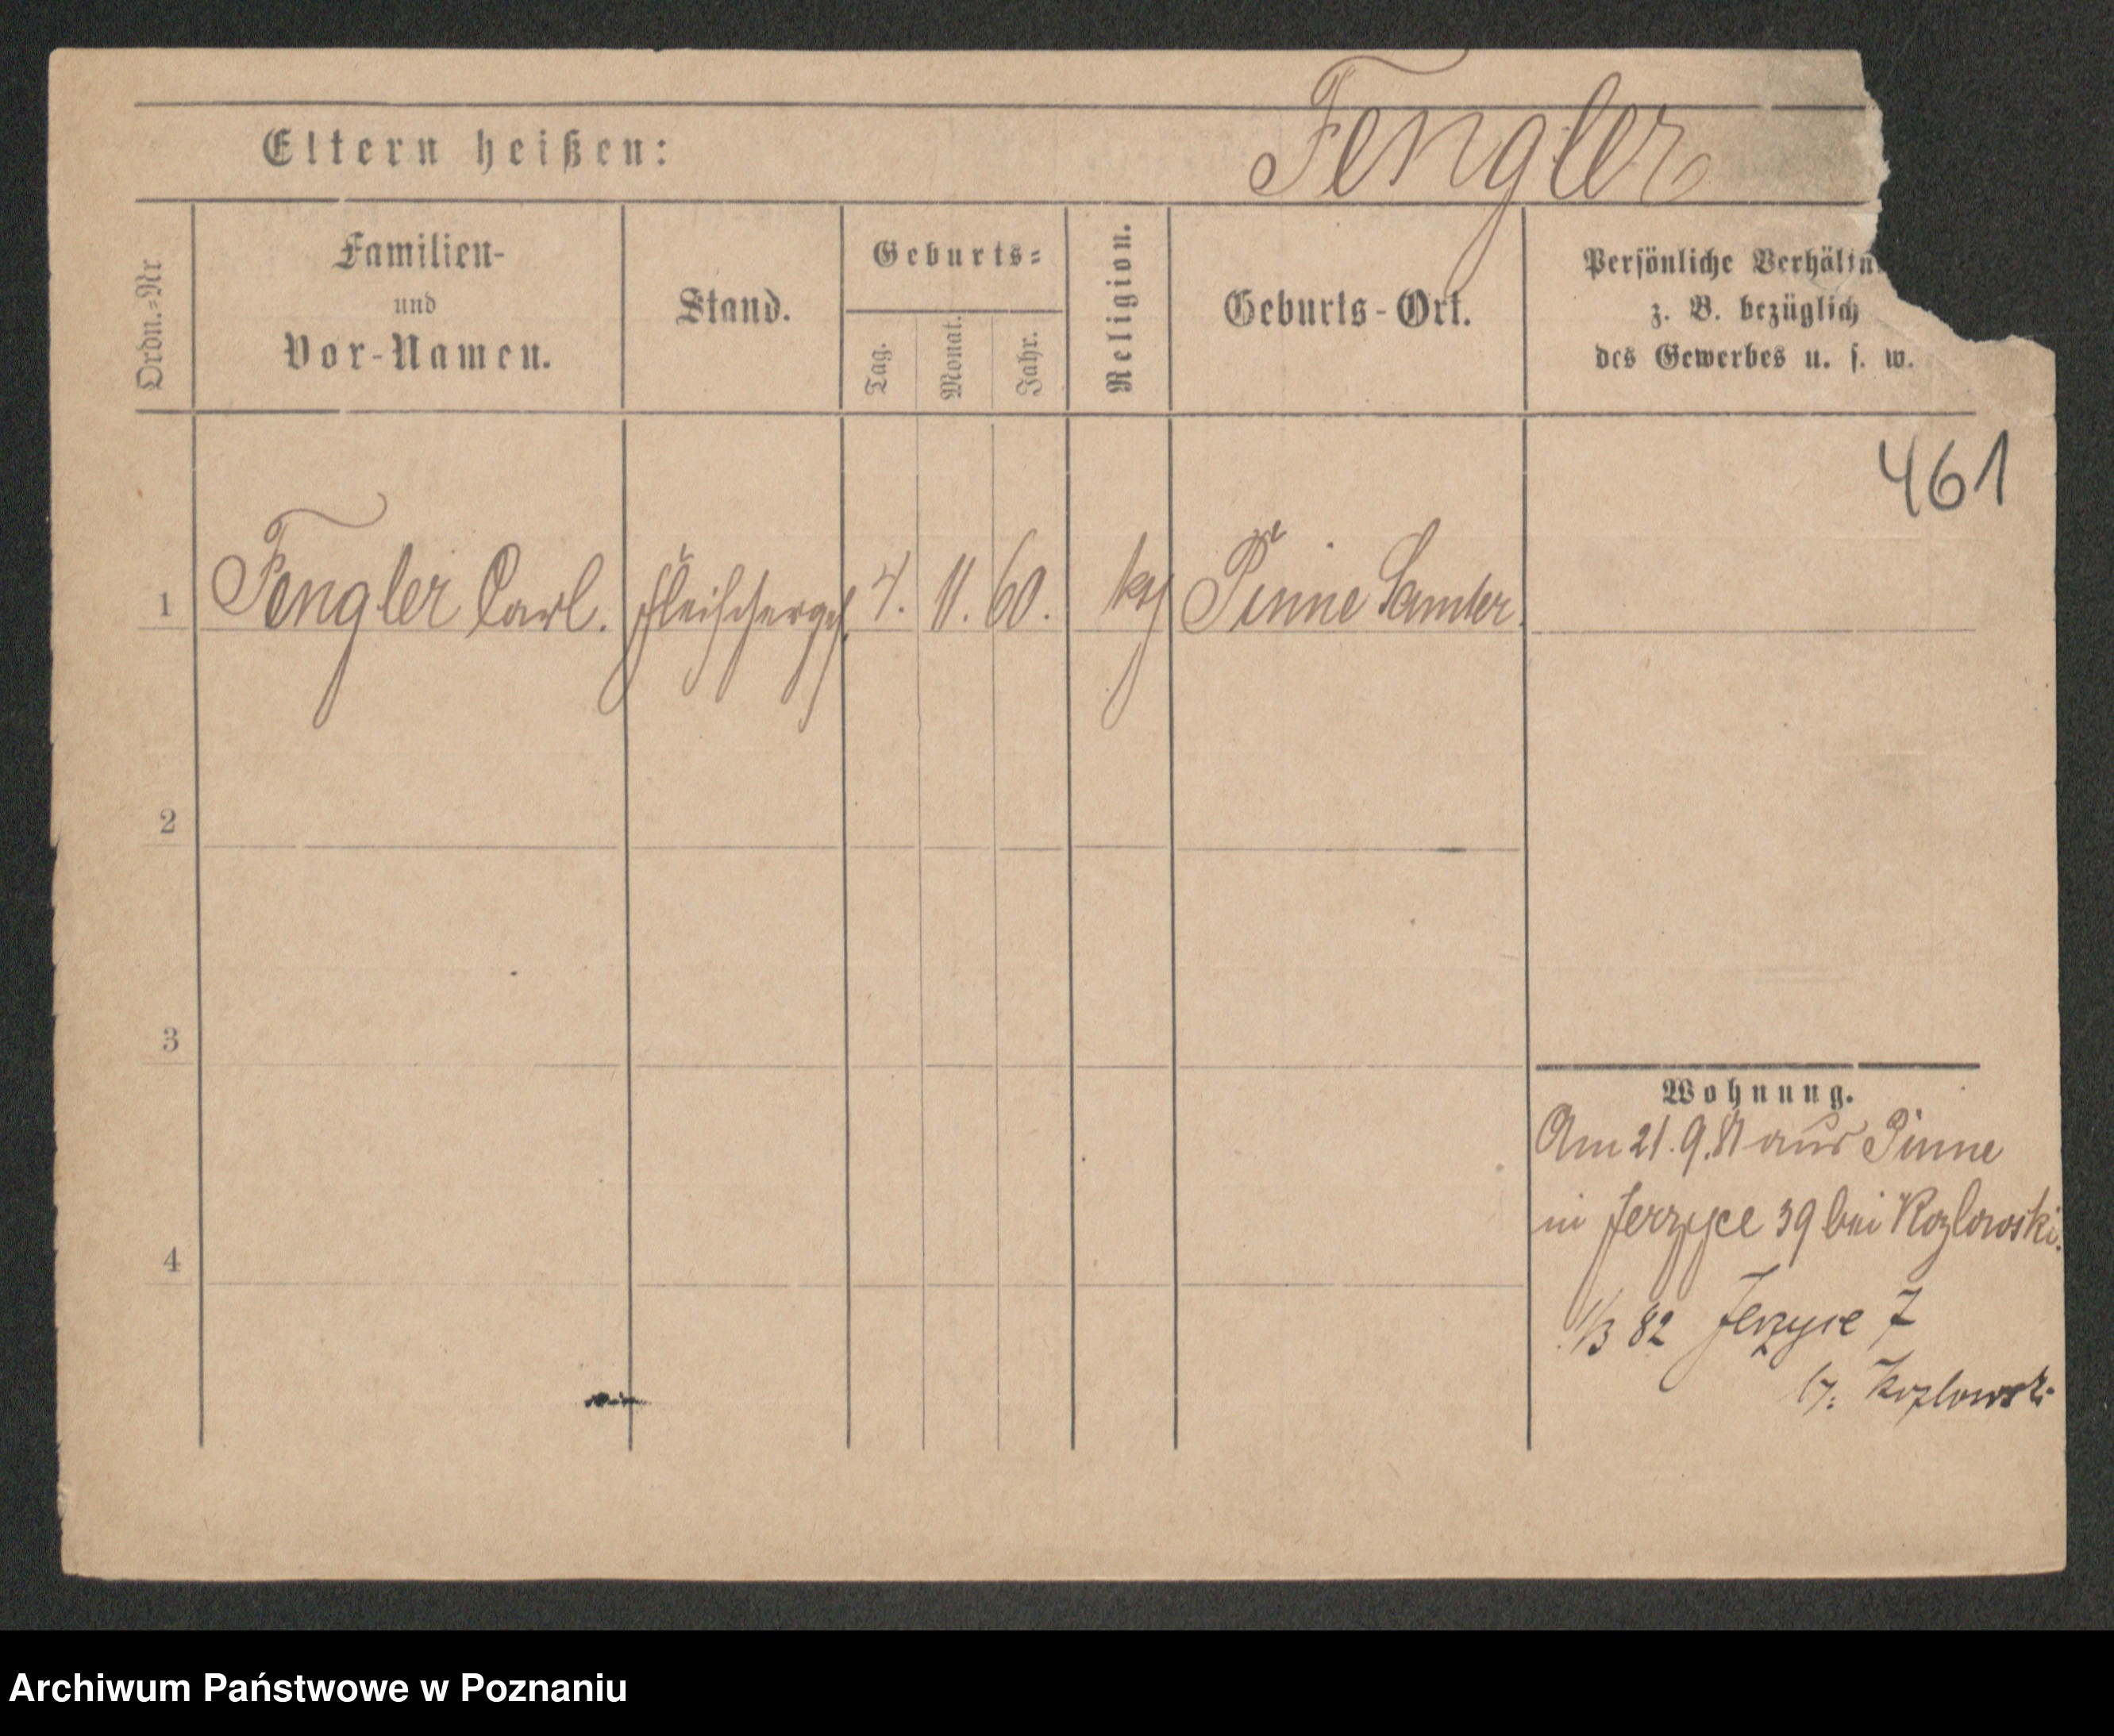 Fengler
Eltern heißen:
Ordn.=Nr
Familien-
und
Vor-Namen.
Stand.
Geburts=
Tag.
Monat.
Jahr.
Religion.
Geburts-Ort.
Persönliche Verhältn
z. B. bezüglich
des Gewerbes u. s. w.
461
1 Fengler Carl. Fleischerges. 4. 11. 60. kg Pinne Samter.
2
3
4
Wohnung.
Am 21.9.81 aus Pinne
in Jerzyce 39 bei Kozlowski.
1/3 82 Jerzyce 7
b. Kozlowski
Archiwum Państwowe w Poznaniu